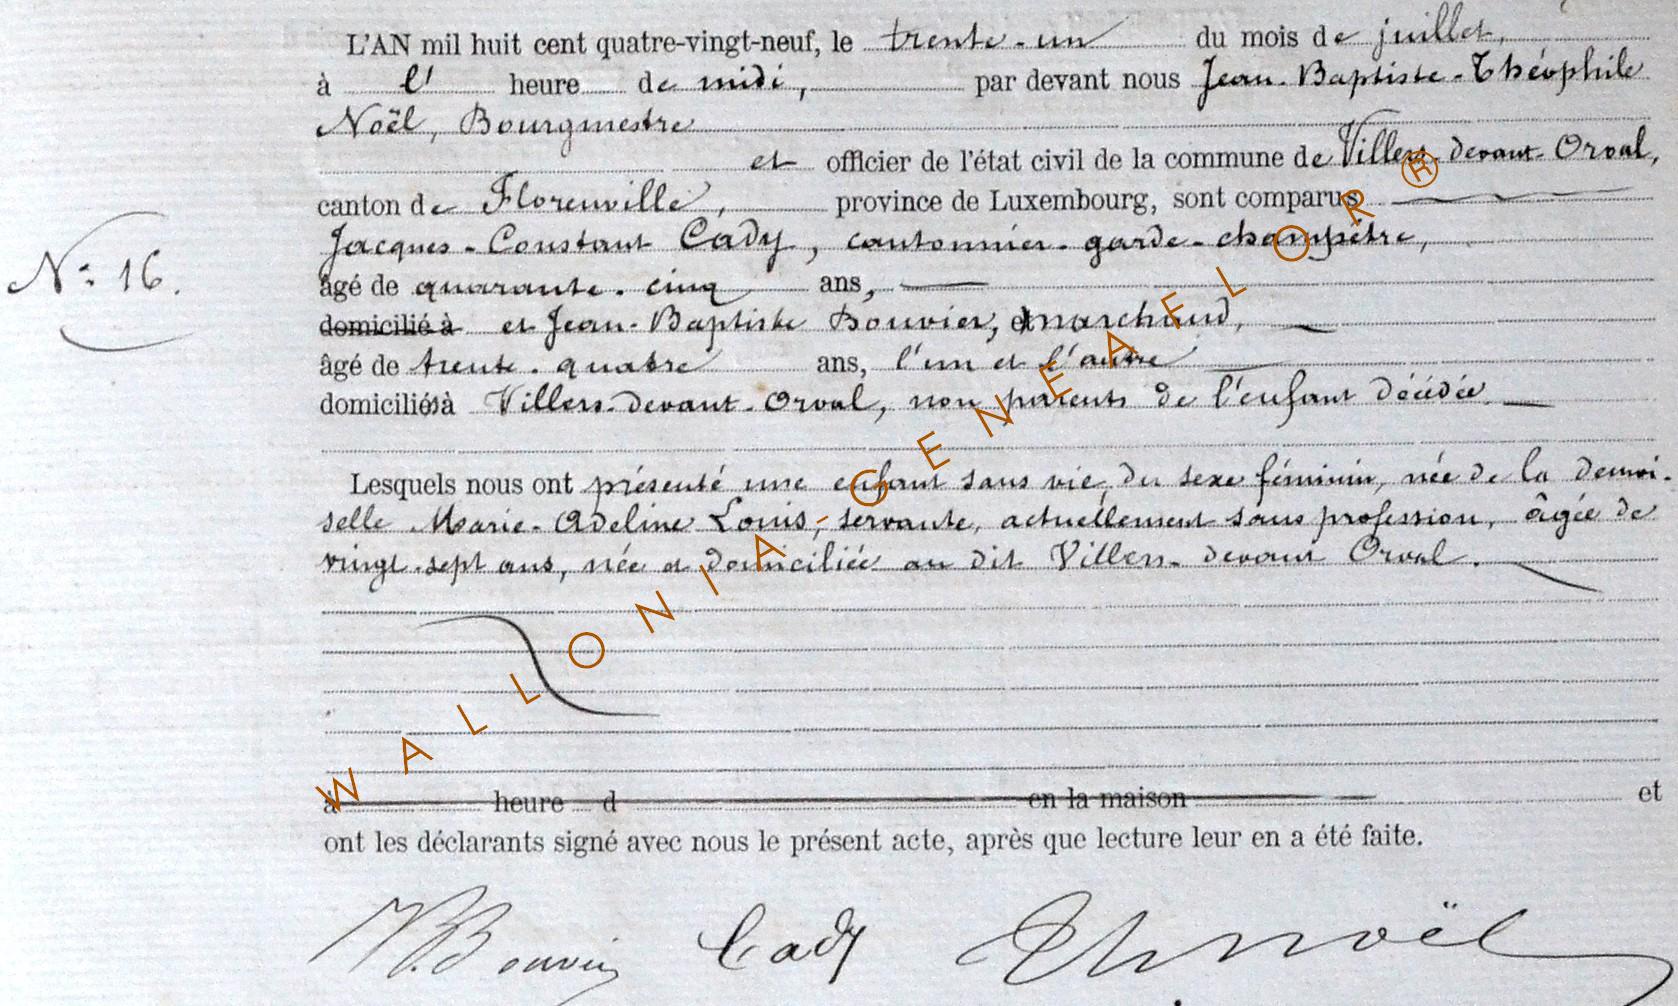 L'AN mil huit cent quatre-vingt-neuf, le trente-un du mois de juillet,
à l' heure de midi, par devant nous Jean-Baptiste-Théophile
Noël, Bourgmestre
et officier de l'état civil de la commune de Villers-devant-Orval,
canton de Florenville, province de Luxembourg, sont comparus
Jacques-Constant Cady, cantonnier-garde-champêtre,
N° 16.
âgé de quarante-cinq ans,
domicilié à et Jean-Baptiste Bouvier, marchand,
âgé de trente-quatre ans, l'un et l'autre
domiciliés à Villers-devant-Orval, non parents de l'enfant décédée.
Lesquels nous ont présenté une enfant sans vie, du sexe féminin, née de la demoi-
selle Marie-Adeline Louis, servante, actuellement sans profession, âgée de
vingt-sept ans, née et domiciliée au dit Villers-devant Orval.
à heure d en la maison et
ont les déclarants signé avec nous le présent acte, après que lecture leur en a été faite.
JB Bouvier Cady Th Noël
WALLONIA-GENEAFLOR®